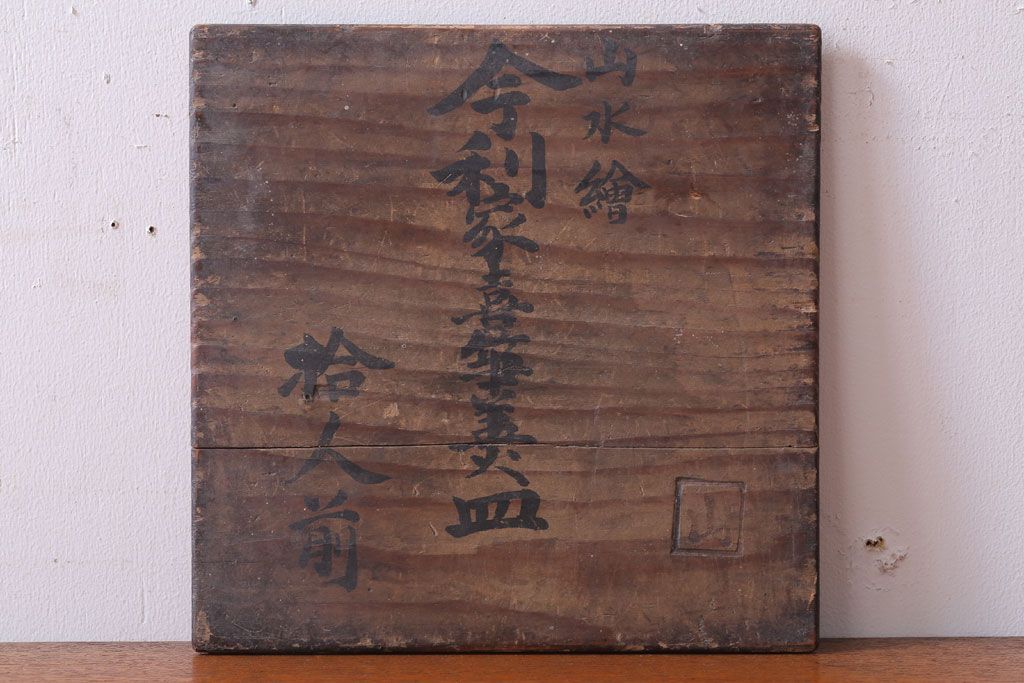 山水繪
今利家喜皿
拾人前
山